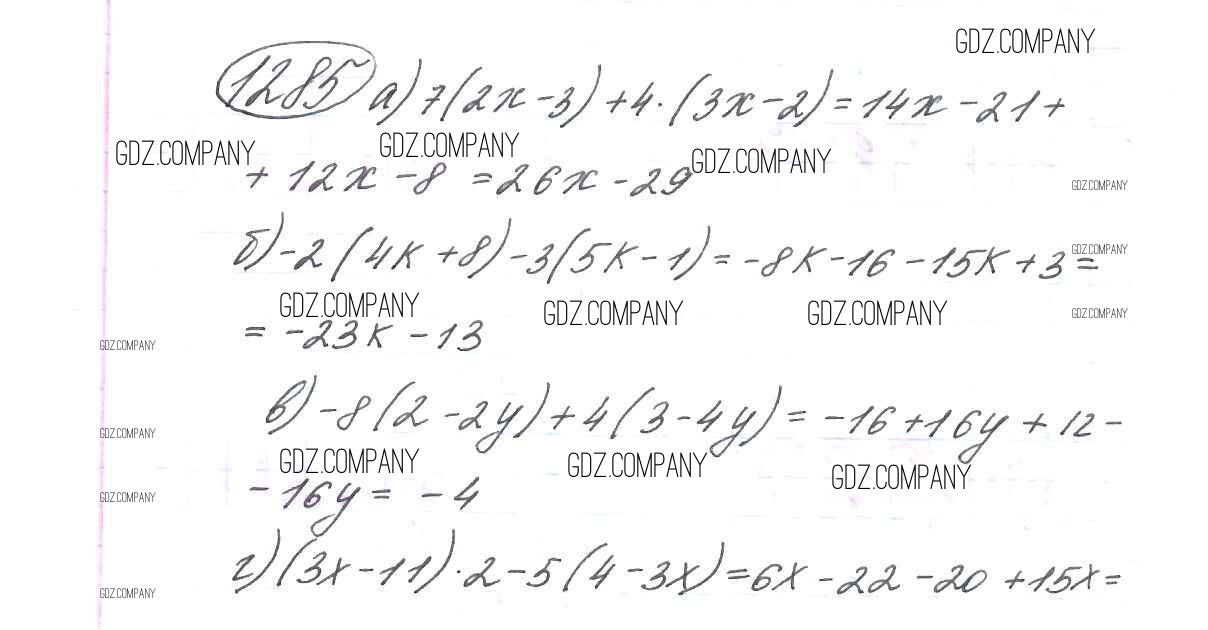 GDZ.COMPANY
1285 а) 7(2x-3)+4·(3x-2)=14x-21+
GDZ.COMPANY GDZ.COMPANY GDZ.COMPANY
+12x-8=26x-29
GDZ.COMPANY
б) -2(4к+8)-3(5к-1)=-8к-16-15к+3=
GDZ.COMPANY
GDZ.COMPANY GDZ.COMPANY GDZ.COMPANY GDZ.COMPANY
= -23к-13
GDZ.COMPANY
в) -8(2-2y)+4(3-4y)=-16+16y+12-
GDZ.COMPANY
GDZ.COMPANY GDZ.COMPANY GDZ.COMPANY
-16y=-4
GDZ.COMPANY
г) (3x-11)·2-5(4-3x)=6x-22-20+15x=
GDZ.COMPANY